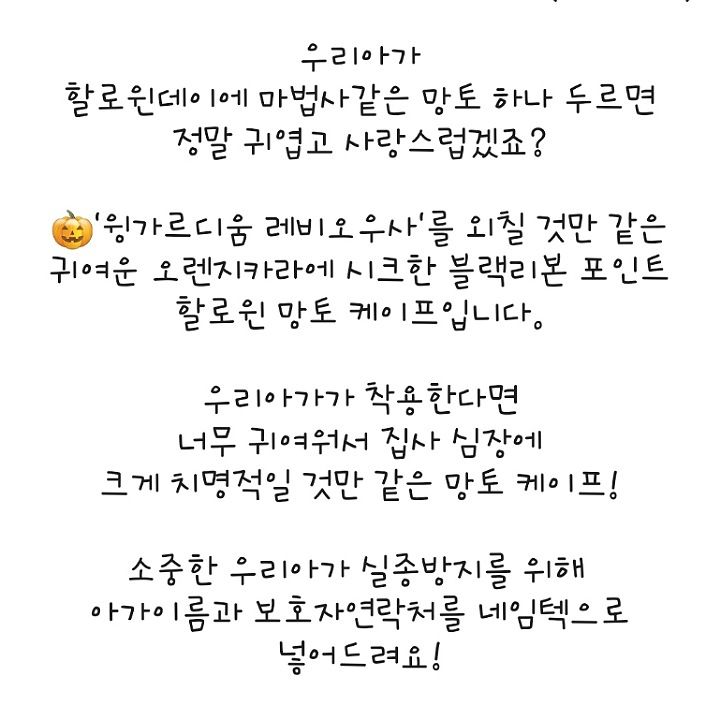 우리아가
할로윈데이에 마법사같은 망토 하나 두르면
정말 귀엽고 사랑스럽겠죠?
🎃'윙가르디움 레비오우사'를 외칠 것만 같은
귀여운 오렌지카라에 시크한 블랙리본 포인트
할로윈 망토 케이프입니다.
우리아가가 착용한다면
너무 귀여워서 집사 심장에
크게 치명적일 것만 같은 망토 케이프!
소중한 우리아가 실종방지를 위해
아가이름과 보호자연락처를 네임텍으로
넣어드려요!